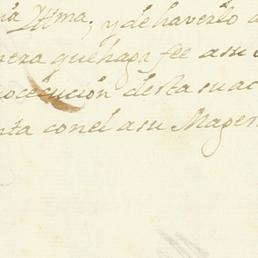 ia Yltma; y de haverlo
nera que haga fee a su
ocecucion desta su ac
nta con el a su Mages